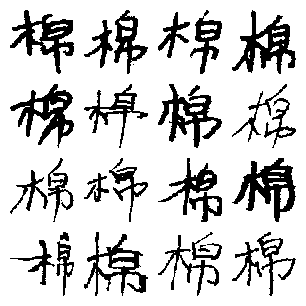 棉棉棉棉
棉棉棉棉
棉棉棉棉
棉棉棉棉